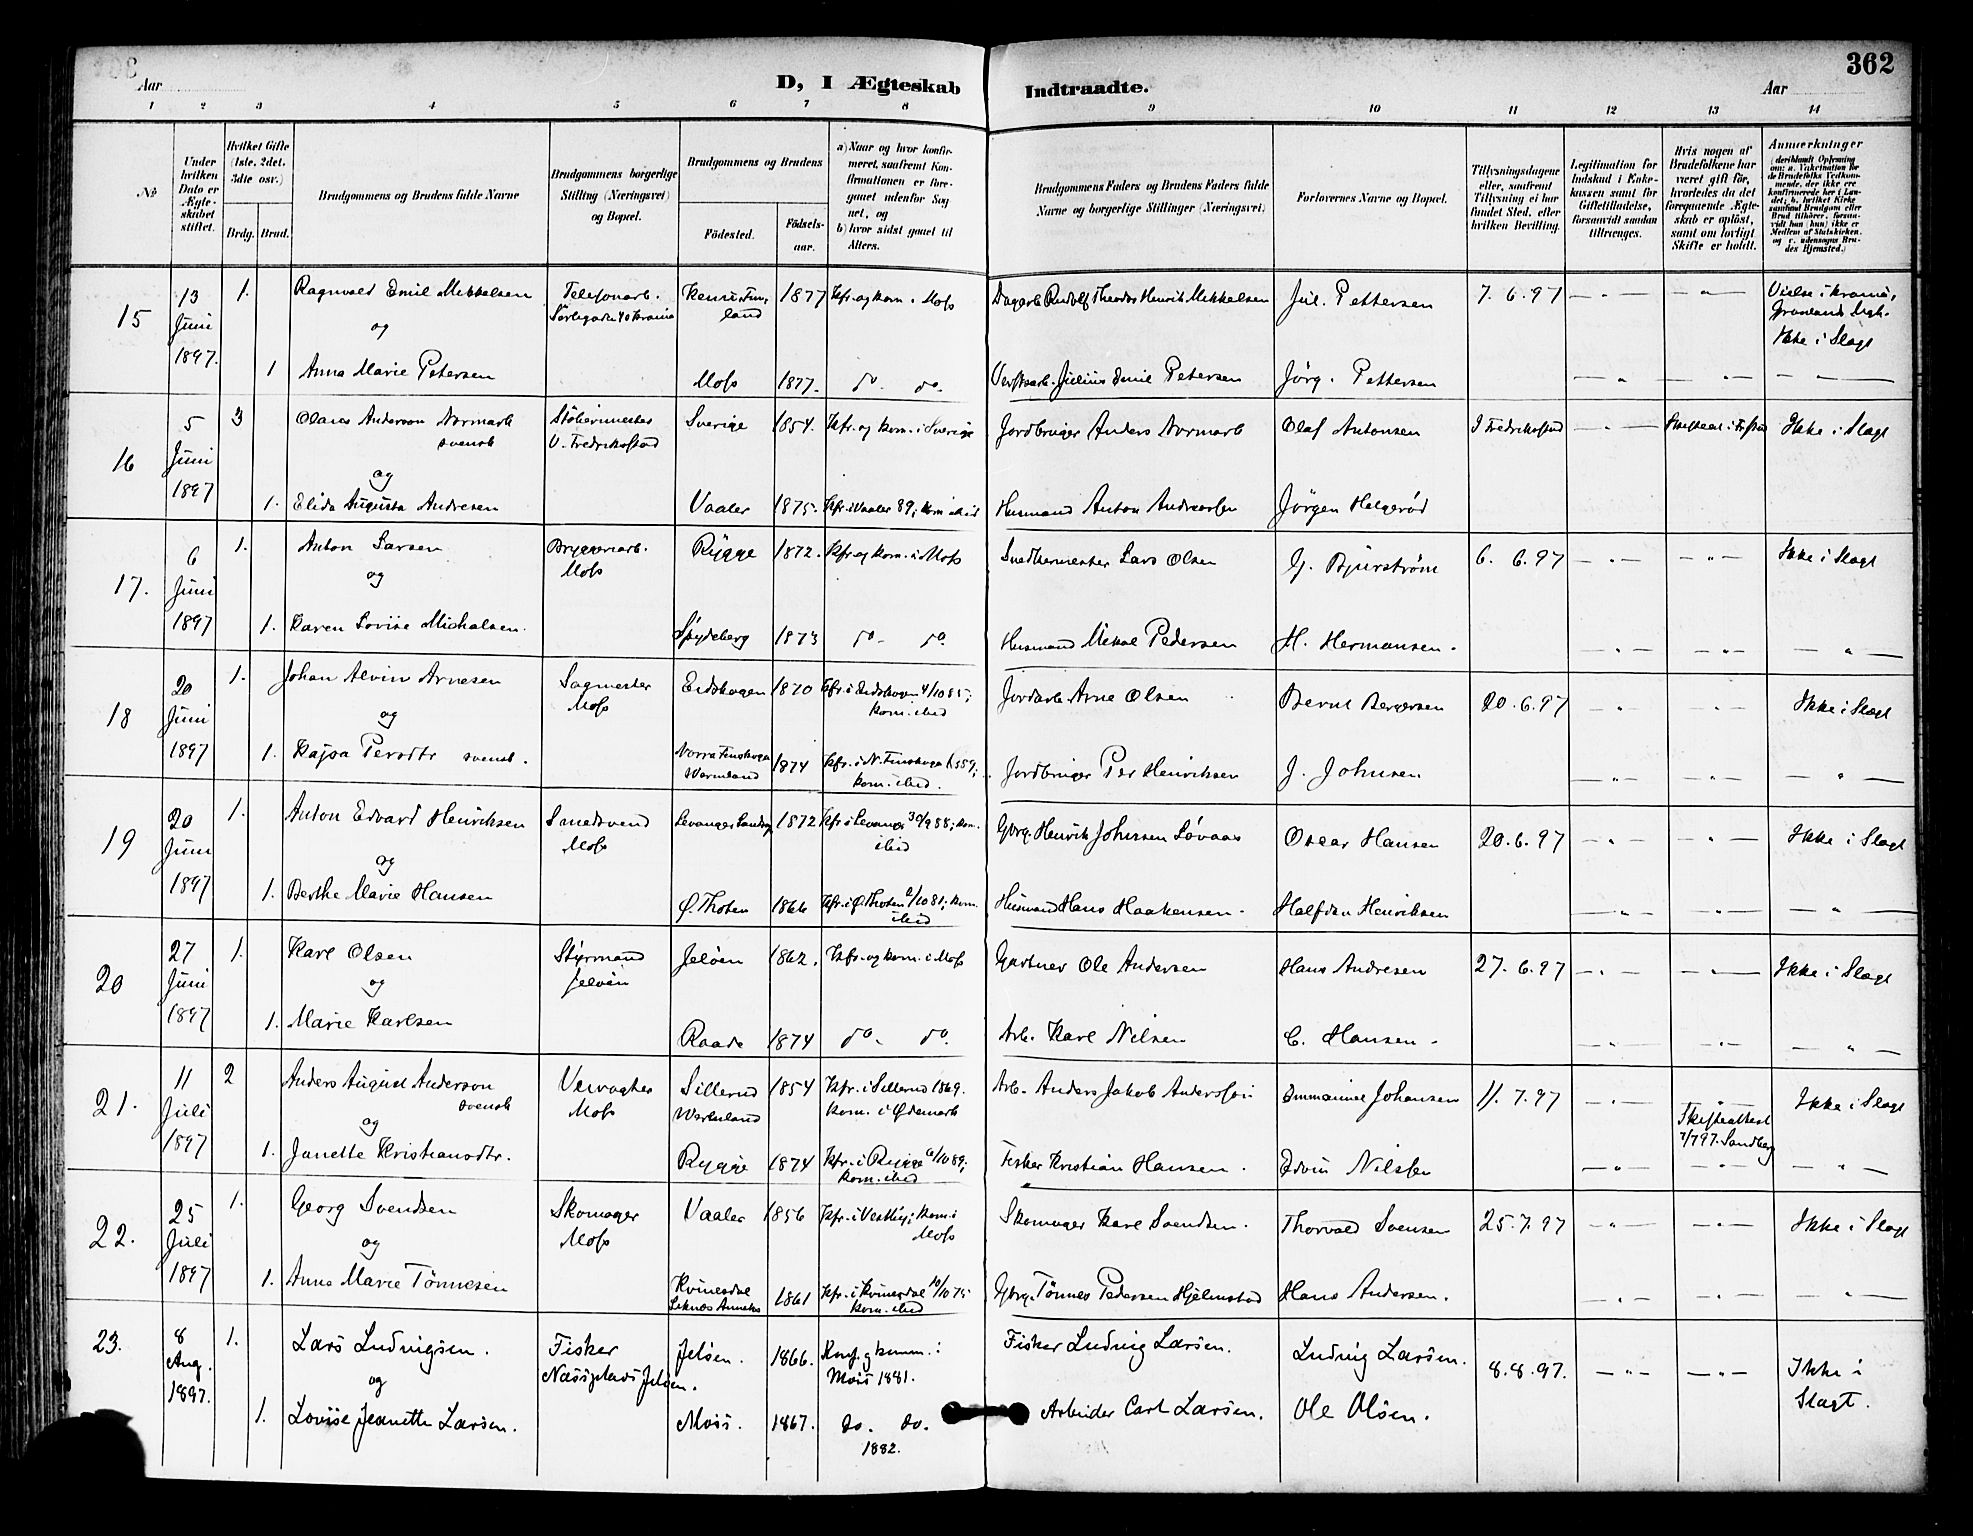 362
Aar
D, I Ægteskab Indtraadte.
Aar
1 2 3 4 5 6 7 8 9 10 11 12 13 14
No
Under hvilken Dato er Ægteskabet stiftet.
Hvilket Gifte (1ste, 2det, 3die osv.)
Brdg. Brud.
Brudgommens og Brudens fulde Navne
Brudgommens borgerlige Stilling (Næringsvei) og Bopæl.
Brudgommens og Brudens
Fødested.
Fødselsaar.
a) Naar og hvor konfirmeret, saafremt Konfirmationen er foregaaet udenfor Sognet, og
b) hvor sidst gaaet til Alters.
Brudgommens Faders og Brudens Faders fulde Navne og borgerlige Stillinger (Næringsvei)
Forlovernes Navne og Bopæl.
Tillysningsdagene eller, saafremt Tillysning ei har fundet Sted, efter hvilken Bevilling.
Legitimation for Indskud i Enkekassen samt for Giftetilladelse, forsaavidt saadan tiltrænges.
Hvis nogen af Brudefolkene har været gift før, hvorledes da det foregaaende Ægteskab er opløst, samt om lovligt Skifte er holdt.
Anmærkninger
15
13 Juni 1897.
1.
Ragnvald Emil Mikkelsen
og
1 Anna Marie Petersen
Telefonarb.
1877 Kfr. og kom. i Moss
Dagarb. Rudolf Theodor Henrik Mikkelsen
Jul. Pettersen
7. 6. 97
Vielse i Krania,
Ikke i Slægt
Moss 1877. do. do.
Verftsarb. Julius Emil Petersen
Jörg. Pettersen
16
5 Juni 1897
3
Olaus Anderson Normark
svensk
og
1. Elida Augusta Andresen
V. Fredrikstad
Sverige 1854. Kfr. og kom. i Sverige
Jordbruger Anders Normark
Olaf Antonsen
I Fredrikstad
Ikke i Slægt
Vaaler 1875. Kfr. i Vaaler 89; kom ibid
Husmand Anton Andreassen
Jörgen Helgerød
17.
6 Juni 1897
1.
Anton Larsen
og
1. Karen Lovise Michalsen.
Bryggeriarb.
Moss
Rygge 1872. Kfr. og kom. i Moss
Snedkermester Lars Olsen
G. Bjurström
6. 6. 97
Ikke i Slægt
Spydeberg 1873 do. do.
Husmand Mikal Pedersen
H. Hermansen.
18
20 Juni 1897
1.
Johan Alvin Arnesen
og
1. Kajsa Persdtr svensk.
Sagmester
Moss
Eidskogen 1870 Kfr. i Eidskogen 4/10 85;
kom. ibid
Jordarb. Arne Olsen
Bernt Bergersen
20. 6. 97
Ikke i Slægt
Norra Finskoga
Wermland
1874 Kfr. i N. Finskoga
kom. ibid.
Jordbruger Per Henriksen
J. Johnsen
19
20 Juni 1897
1.
Anton Edvard Henriksen
og
1. Berthe Marie Hansen
Smedsvend
Moss
1872 Kfr. i Levanger 30/9 88; kom.
ibid
Gbrg. Henrik Johnsen Løvaas
Oscar Hansen
20. 6. 97
Ikke i Slægt
Ø. Thoten 1866 Kfr. i Ø. Thoten 2/10 81; kom.
ibid
Husmand Hans Haakensen.
Halfdan Henriksen
20
27 Juni 1897
1.
Karl Olsen
og
1. Marie Karlsen
Styrmand
Jeløen
Jeløen 1862. Kfr. og kom. i Moss
Gartner Ole Andersen
Hans Andresen
27. 6. 97
Ikke i Slægt
Raade 1874 do. do.
Arb. Karl Nilsen
C. Hansen.
21.
11 Juli 1897
2
Anders August Anderson
svensk
og
1. Janette Kristiansdtr.
Veivogter
Moss
Sillerud
Wermland
1854 Kfr. i Sillerud 1869.
kom. i Ødemark
Arb. Anders Jakob Andersson
Emmanuel Johansen
11. 7. 97
Skifteattest
7/7 97. Sandberg
Ikke i Slægt
Rygge 1874 Kfr. i Rygge 6/10 89;
kom. ibid
Fisker Kristian Hansen.
Edvin Nilssen
22.
25 Juli 1897
1.
Georg Svendsen
og
1. Anna Marie Tönnesen
Skomager
Moss
Vaaler 1856 Kfr. i Vestby; kom. i
Moss
Skomager Karl Svendsen.
Thorvald Svensen
25. 7. 97
Ikke i Slægt
Kvinesdal
1861 Kfr. i Kvinesdal 10/10 75
kom. ibid
Gbrg. Tönnes Pedersen Hjelmstad
Hans Andersen.
23.
8 Aug. 1897.
1.
Lars Ludvigsen.
og
1. Lovise Jeanette Larsen.
Fisker
Næssplads Jeløen.
Jeløen. 1866. Konf. og komm. i
Moss 1881.
Fisker Ludvig Larsen.
Ludvig Larsen.
8. 8. 97.
Ikke i Slægt.
Moss. 1867. do. do.
1882.
Arbeider Carl Larsen.
Ole Olsen.